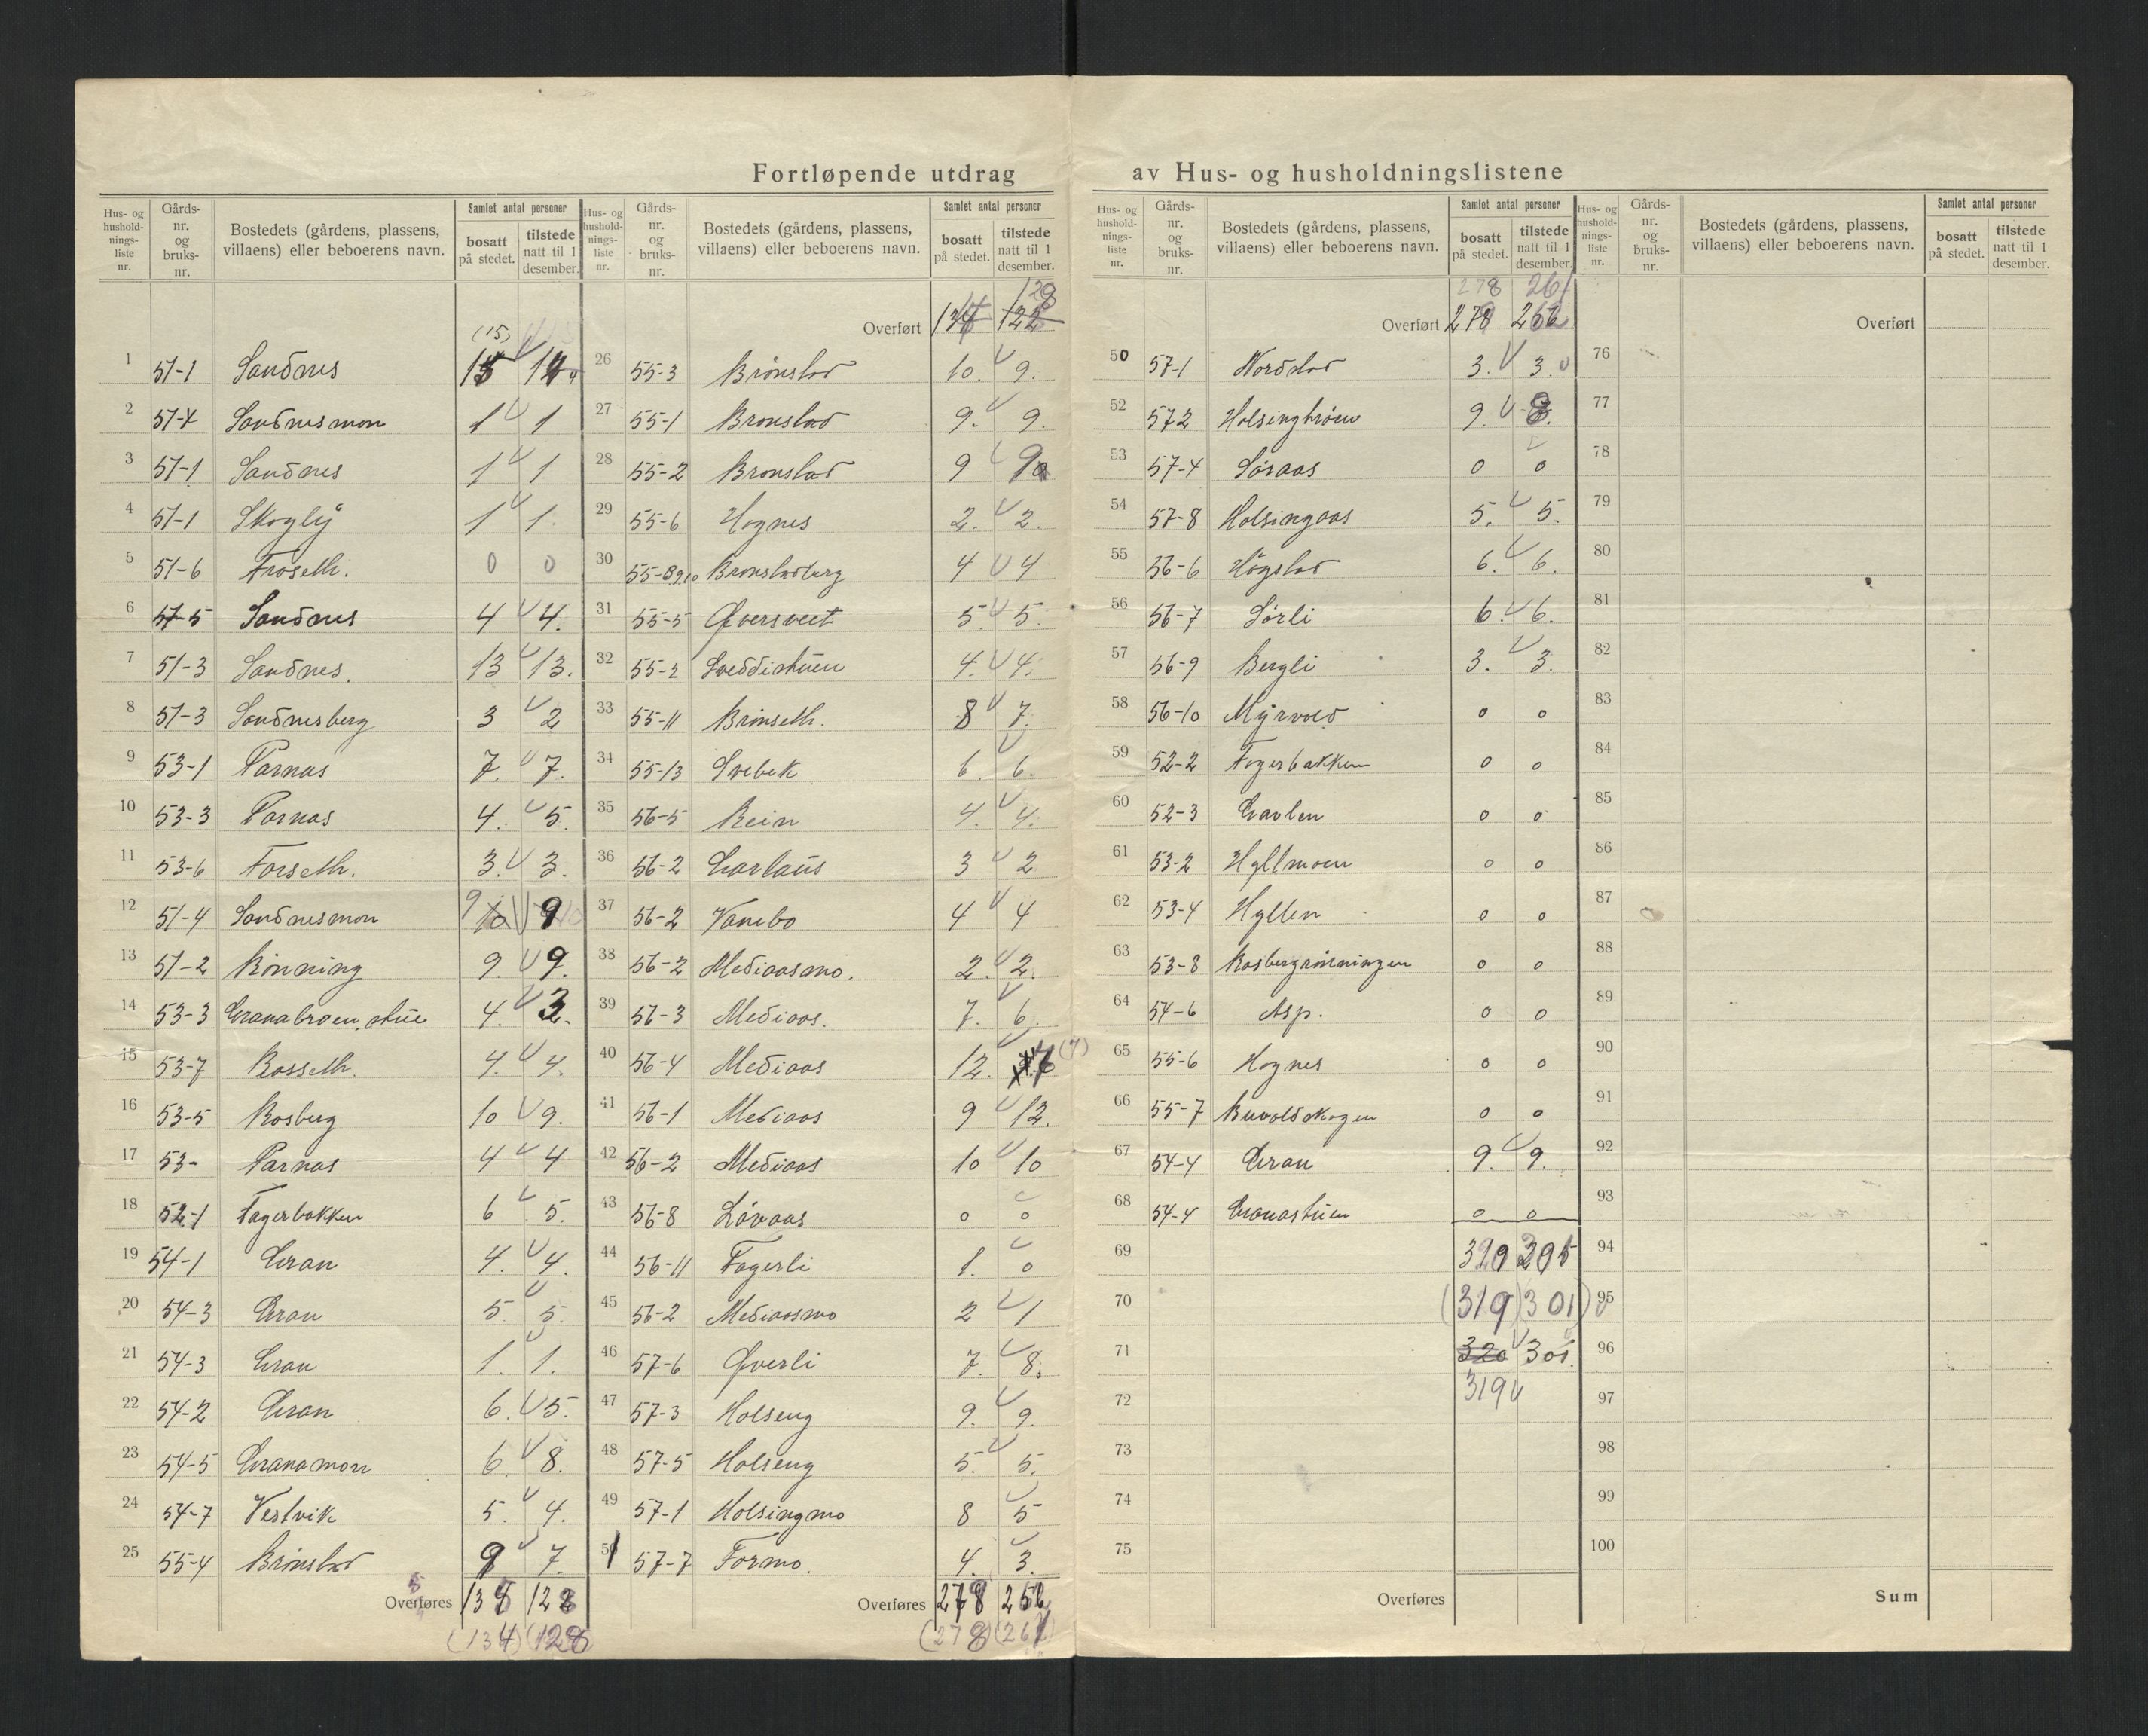 Fortløpende utdrag av Hus- og husholdningslistene
Hus- og hushold-nings-liste nr. Gårds-nr. og bruks-nr. Bostedets (gårdens, plassens, villaens) eller beboerens navn. Samlet antal personer bosatt på stedet. tilstede natt til 1 desember.
(15)
1 51-1 Sandnes 15
2 51-4 Sandnesmon 1 1
3 51-1 Sandnes 1 1
4 51-1 Skogly 1 1
5 51-6 Froseth. 0 0
6 51-5 Sandnes 4 4.
7 51-3 Sandnes. 13 13.
8 51-3 Sandnesberg 3 2
9 53-1 Parnas 7. 7.
10 53-3 Parnas 4. 5.
11 53-6 Forseth. 3. 3.
12 51-4 Sandnesmon 9 9
13 51-2 Rönning 9. 9.
14 53-3 Granabroen, stue 4. 3.
15 53-7 Rosseth. 4. 4.
16 53-5 Rosberg 10 9.
17 53- Parnas 4 4
18 52-1 Fagerbakken 6 5.
19 54-1 Gran 4. 4.
20 54-3 Gran 5. 5.
21 54-3 Gran 1. 1.
22 54-2 Gran 6. 5.
23 54-5 Granamon 6. 8.
24 54-7 Vestvik 5. 4.
25 55-4 Brönstad 9 7.
Overføres
(134) (128)
Hus- og hushold-nings-liste nr. Gårds-nr. og bruks-nr. Bostedets (gårdens, plassens, villaens) eller beboerens navn. Samlet antal personer bosatt på stedet. tilstede natt til 1 desember.
128
Overført 134 122
26 55-3 Brönstad 10. 9.
27 55-1 Bronstad 9. 9.
28 55-2 Bronstad 9 9
29 55-6 Hognes 2. 2.
30 55-8,9,10 Bronstadberg 4 4
31 55-5 Qversveet 5. 5.
32 55-2 Sveddistuen 4. 4.
33 55-11 Brönseth. 8 7.
34 55-13 Svebek 6. 6.
35 56-5 Rein 4. 4.
36 56-2 Garlaus 3 2
37 56-2 Vanebo 4 4
38 56-2 Mediaasmo. 2. 2.
39 56-3 Mediaas. 7. 6.
40 56-4 Mediaas 12. 7 (7)
41 56-1 Mediaas 9 12.
42 56-2 Mediaas 10 10
43 56-8 Lövaas 0 0
44 56-11 Fagerli 1. 0
45 56-2 Mediaasmo 2 1
46 57-6 Qverli 7. 8.
47 57-3 Holseng 9. 9.
48 57-5 Holseng 5. 5.
49 57-1 Holsingmo 8 5
51 57-7 Formo. 4. 3.
Overføres 278
(278) (261)
Hus- og hushold-nings-liste nr. Gårds-nr. og bruks-nr. Bostedets (gårdens, plassens, villaens) eller beboerens navn. Samlet antal personer bosatt på stedet. tilstede natt til 1 desember.
278 261
Overført 278 262
50 57-1 Nordstad 3. 3.
52 57-2 Holsingbröen 9. 8.
53 57-4 Söraas 0 0
54 57-8 Holsingaas 5. 5.
55 56-6 Högstad 6. 6.
56 56-7 Sörli 6. 6.
57 56-9 Bergli 3. 3.
58 56-10 Myrvold 0 0
59 52-2 Fagerbakken 0 0
60 52-3 Gavlen 0 0
61 53-2 Hyllmoen 0 0
62 53-4 Hyllen 0 0
63 53-8 Rosbergrönningen 0 0
64 54-6 Asp. 0 0
65 55-6 Hognes 0 0
66 55-7 Buvoldskogen 0 0
67 54-4 Gran 9. 9.
68 54-4 Granastuen 0 0
69 320
70 (319) (301)
71 320 301.
72 319
73
74
75
Overføres
Hus- og hushold-nings-liste nr. Gårds-nr. og bruks-nr. Bostedets (gårdens, plassens, villaens) eller beboerens navn. Samlet antal personer bosatt på stedet. tilstede natt til 1 desember.
Overført
76
77
78
79
80
81
82
83
84
85
86
87
88
89
90
91
92
93
94
95
96
97
98
99
100
Sum